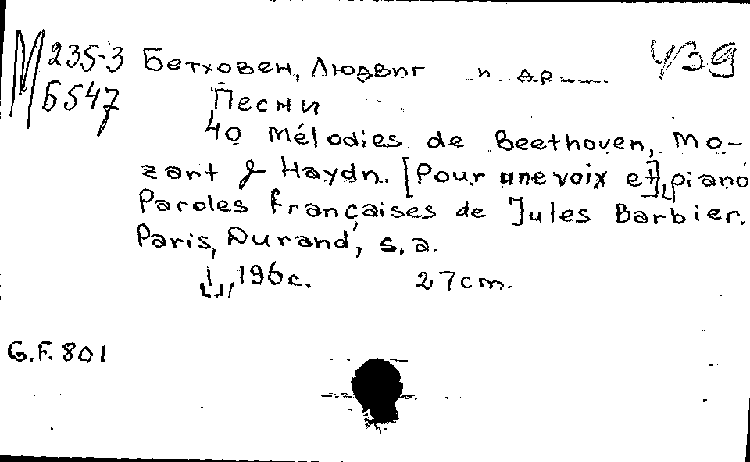 М 235-3 Бетховен, Людвиг и др. УЗ9
Б547 Песни
40 Mélodies de Beethoven, Mo-
zart & Haydn. [Pour une voix et], piano
Paroles françaises de Jules Barbier.
Paris, Durand, s.a.
196c. 27cm.
G.F. 801